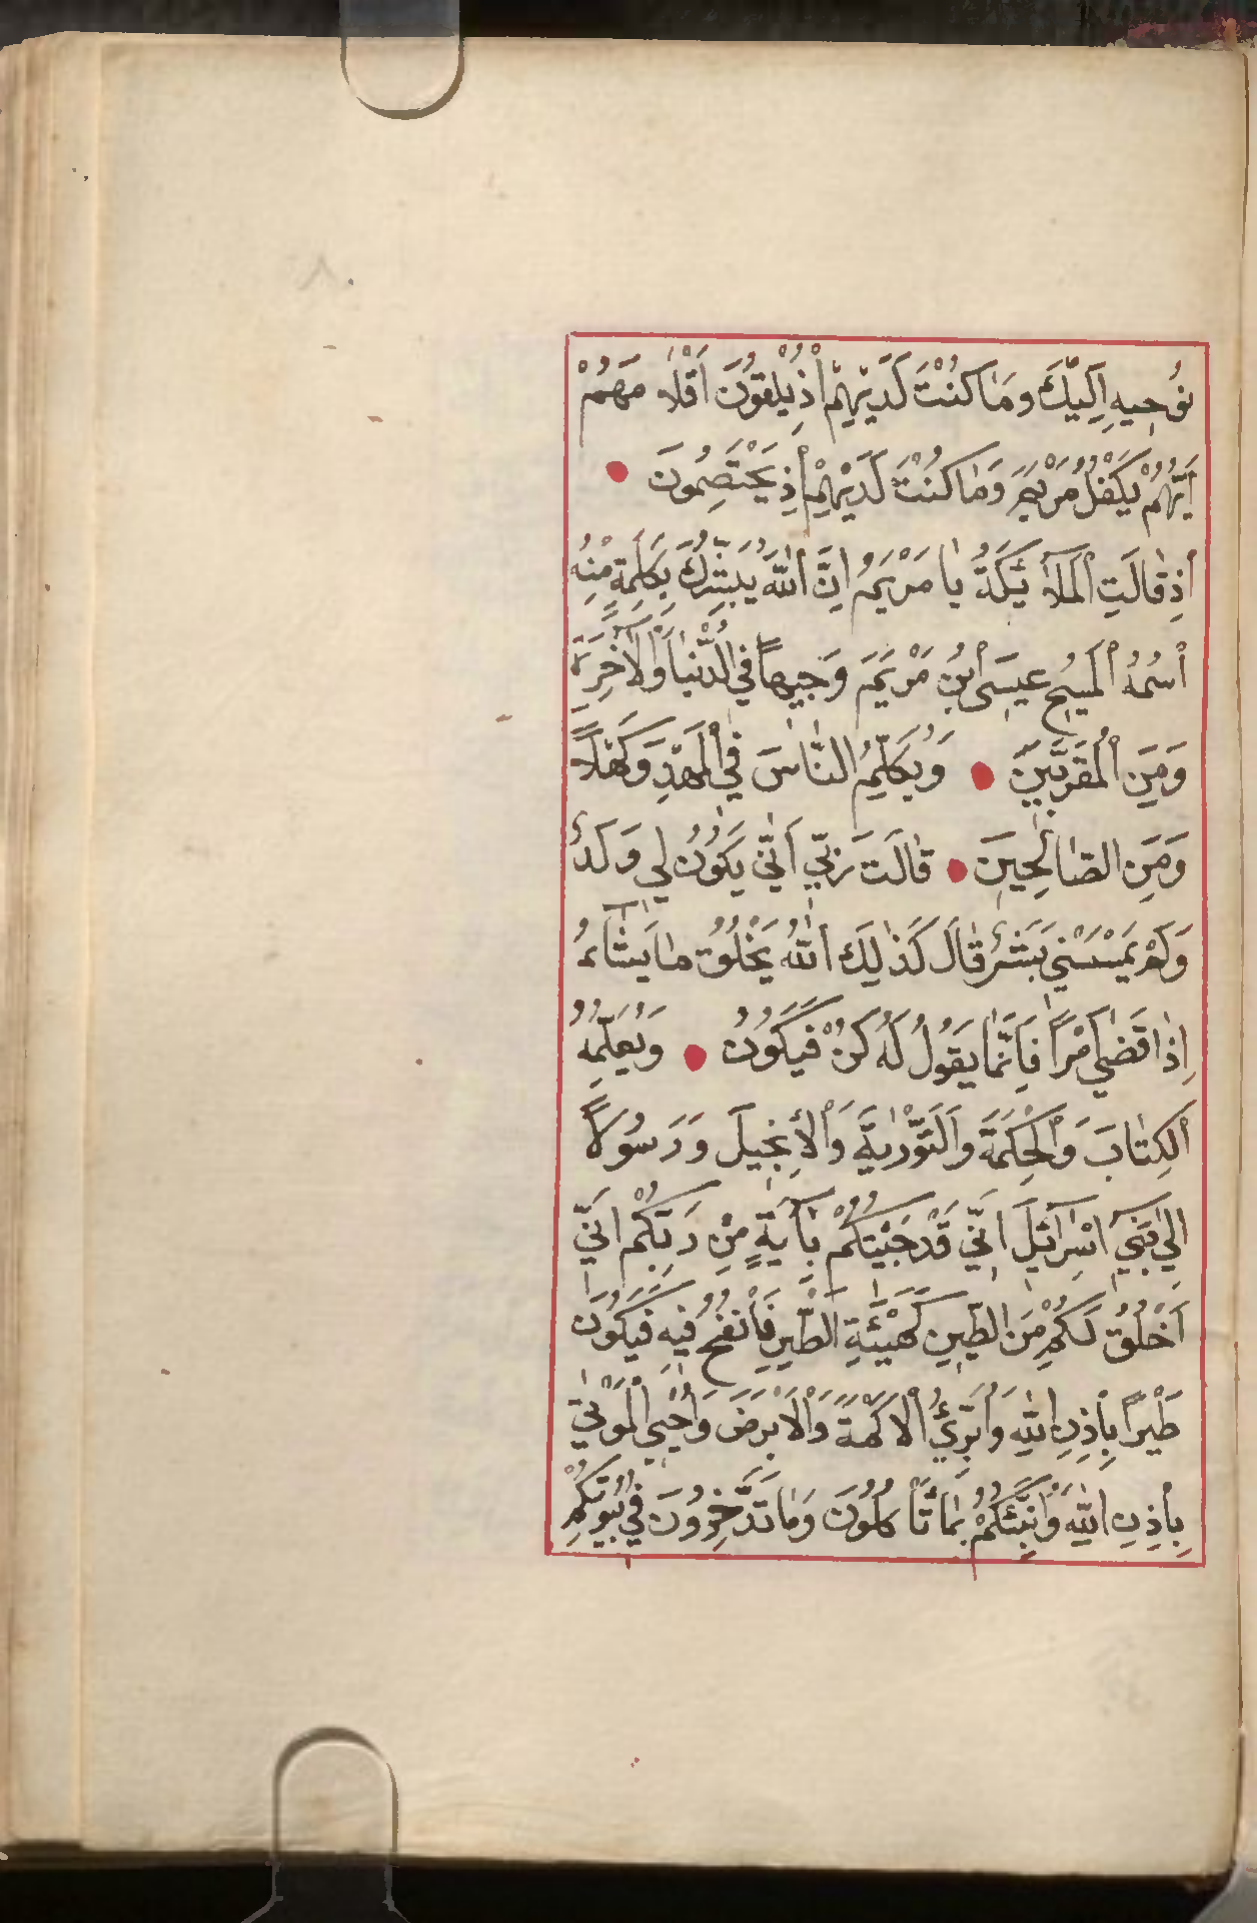 نُوحِيهِ اِلَيْكَ وَمَا كُنْتَ لَدَيْهِمْ أِذْ يُلْقُونَ اَقْلَا مَهُمْ
اَيُّهُمْ يَكْفُلُ مَرْيَمَ وَمَا كُنْتَ لَدَيْهِمْ أِذْ يَخْتَصِمُونَ
أِذْ قَالَتِ اْلمَلَآ ئِكَةُ يَا مَرْيَمُ اِنَّ اْللّٰهَ يُبَشِّرُكَ بِكَلِمَةٍ مِنْهُ
اْسْمُهُ اْلمَسِيحُ عِيسَى اْبْنُ مَرْيَمَ وَجِيهاً فِي الدُّنْيَا وَاْلآخِرَةِ
وَمِنَ اْلمُقَرَّبِينَ وَيُكَلِّمُ النَّاسَ فِي اْلمَهْدِ وَكَهْلاً
وَمِنَ الصَّالِحِينَ قَالَتْ رَبِّ اَنَّي يَكُونُ لِي وَلَدٌ
وَلَمْ يَمْسَسْنِي بَشَرٌ قَالَ كَذٰلِكَ اْللّٰهُ يَخْلُقُ مَا يَشَآءُ
اِذَا قَضٰي اَمْراً فَاِنَّمَا يَقُولُ لَهُ كُنْ فَيَكُونُ وَيُعَلِّمُهُ
اْلكِتَابَ وَاْلحِكْمَةَ وَاْلتَّوْرٰيةَ وَاْلأِنْجِيلَ وَرَسُولاً
اِلٰي بَنِيٓ اِسْرَآئِلَ اَنِّي قَدْ جَئْتُكُمْ بِآيَةٍ مِنْ رَبِّكُمْ اَنِّي
اَخْلُقُ لَكُمْ مِنَ الطِّينِ كَهَيْئَةِ الطَّيْرِ فَاَنْفُخُ فِيهِ فَيَكُونُ
طَيْراً بِاِذْنِ اللّٰهِ وَاُبْرِئُ اْلاَكْمَهَ وَاْلاَبْرَصَ وَاُحْيِي اْلمَوْتٰي
بِاِذْنِ اللّٰهِ وَاُنَبِّئُكُمْ بِمَا تَأْ كُلُونَ وَمَا تَدَّخِرُونَ فِي بُيُوتِكُمْ